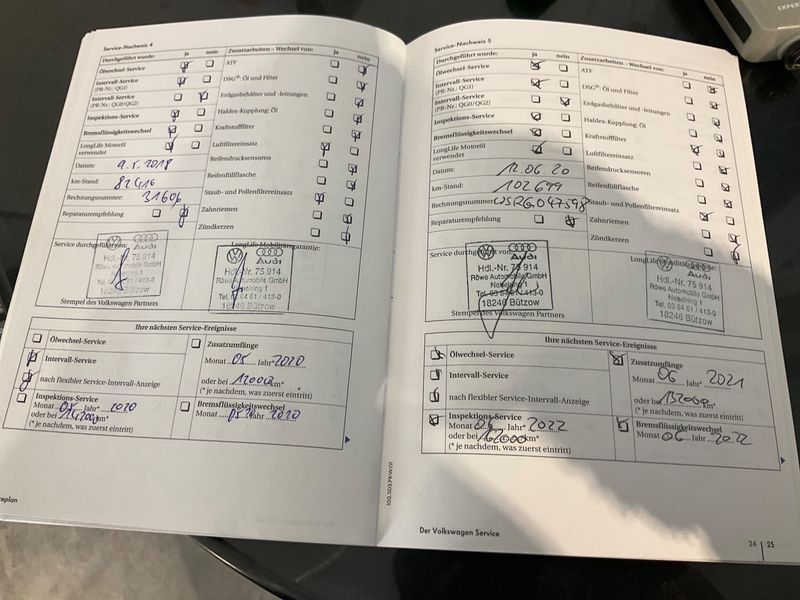 Service-Nachweis 4
Durchgeführt wurde: ja nein
Zusatzarbeiten – Wechsel von: ja nein
Ölwechsel-Service
ATF
Intervall-Service
(PR-Nr.: QG1)
DSG®: Öl und Filter
Intervall-Service
(PR-Nr.: QG0/QG2)
Erdgasbehälter und -leitungen
Inspektions-Service
Haldex-Kupplung: Öl
Bremsflüssigkeitswechsel
Kraftstofffilter
LongLife Motoröl
verwendet
Luftfiltereinsatz
Datum: 9.5.2018
Reifendrucksensoren
km-Stand:
Reifenfüllflasche
Rechnungsnummer: 31606
Staub- und Pollenfiltereinsatz
Reparaturempfehlung
Zahnriemen
Zündkerzen
Service durchgeführt von:
LongLife Mobilitätsgarantie:
Audi
Hdl.-Nr. 75 914
Röwo Automobile GmbH
Nebelring 1
Tel. 03 84 61 / 413-0
18246 Bützow
Audi
Hdl.-Nr. 75 914
Röwo Automobile GmbH
Nebelring 1
Tel. 03 84 61 / 413-0
18246 Bützow
Stempel des Volkswagen Partners
Ihre nächsten Service-Ereignisse
Ölwechsel-Service
Zusatzumfänge
Monat 05 Jahr* 2020
oder bei 12000 km*
(* je nachdem, was zuerst eintritt)
Intervall-Service
nach flexibler Service-Intervall-Anzeige
Inspektions-Service
Monat 05 Jahr* 2020
oder bei km*
(* je nachdem, was zuerst eintritt)
Bremsflüssigkeitswechsel
Monat 05 Jahr 2020
102.5D3.PKW.01
Service-Nachweis 5
Durchgeführt wurde: ja nein
Zusatzarbeiten – Wechsel von: ja nein
Ölwechsel-Service
ATF
Intervall-Service
(PR-Nr.: QG1)
DSG®: Öl und Filter
Intervall-Service
(PR-Nr.: QG0/QG2)
Erdgasbehälter und -leitungen
Inspektions-Service
Haldex-Kupplung: Öl
Bremsflüssigkeitswechsel
Kraftstofffilter
LongLife Motoröl
verwendet
Luftfiltereinsatz
Datum: 12.06.20
Reifendrucksensoren
km-Stand: 102699
Reifenfüllflasche
Rechnungsnummer: WSRG047598
Staub- und Pollenfiltereinsatz
Reparaturempfehlung
Zahnriemen
Zündkerzen
Service durchgeführt von:
LongLife Mobilitätsgarantie:
Audi
Hdl.-Nr. 75 914
Röwo Automobile GmbH
Nebelring 1
Tel. 03 84 61 / 413-0
18246 Bützow
Audi
Hdl.-Nr. 75 914
Röwo Automobile GmbH
Nebelring 1
Tel. 03 84 61 / 413-0
18246 Bützow
Stempel des Volkswagen Partners
Ihre nächsten Service-Ereignisse
Ölwechsel-Service
Zusatzumfänge
Monat 06 Jahr 2021
oder bei 132000 km*
(* je nachdem, was zuerst eintritt)
Intervall-Service
nach flexibler Service-Intervall-Anzeige
Inspektions-Service
Monat 06 Jahr* 2022
oder bei 162000 km*
(* je nachdem, was zuerst eintritt)
Bremsflüssigkeitswechsel
Monat 06 Jahr 2022
Der Volkswagen Service
24 | 25